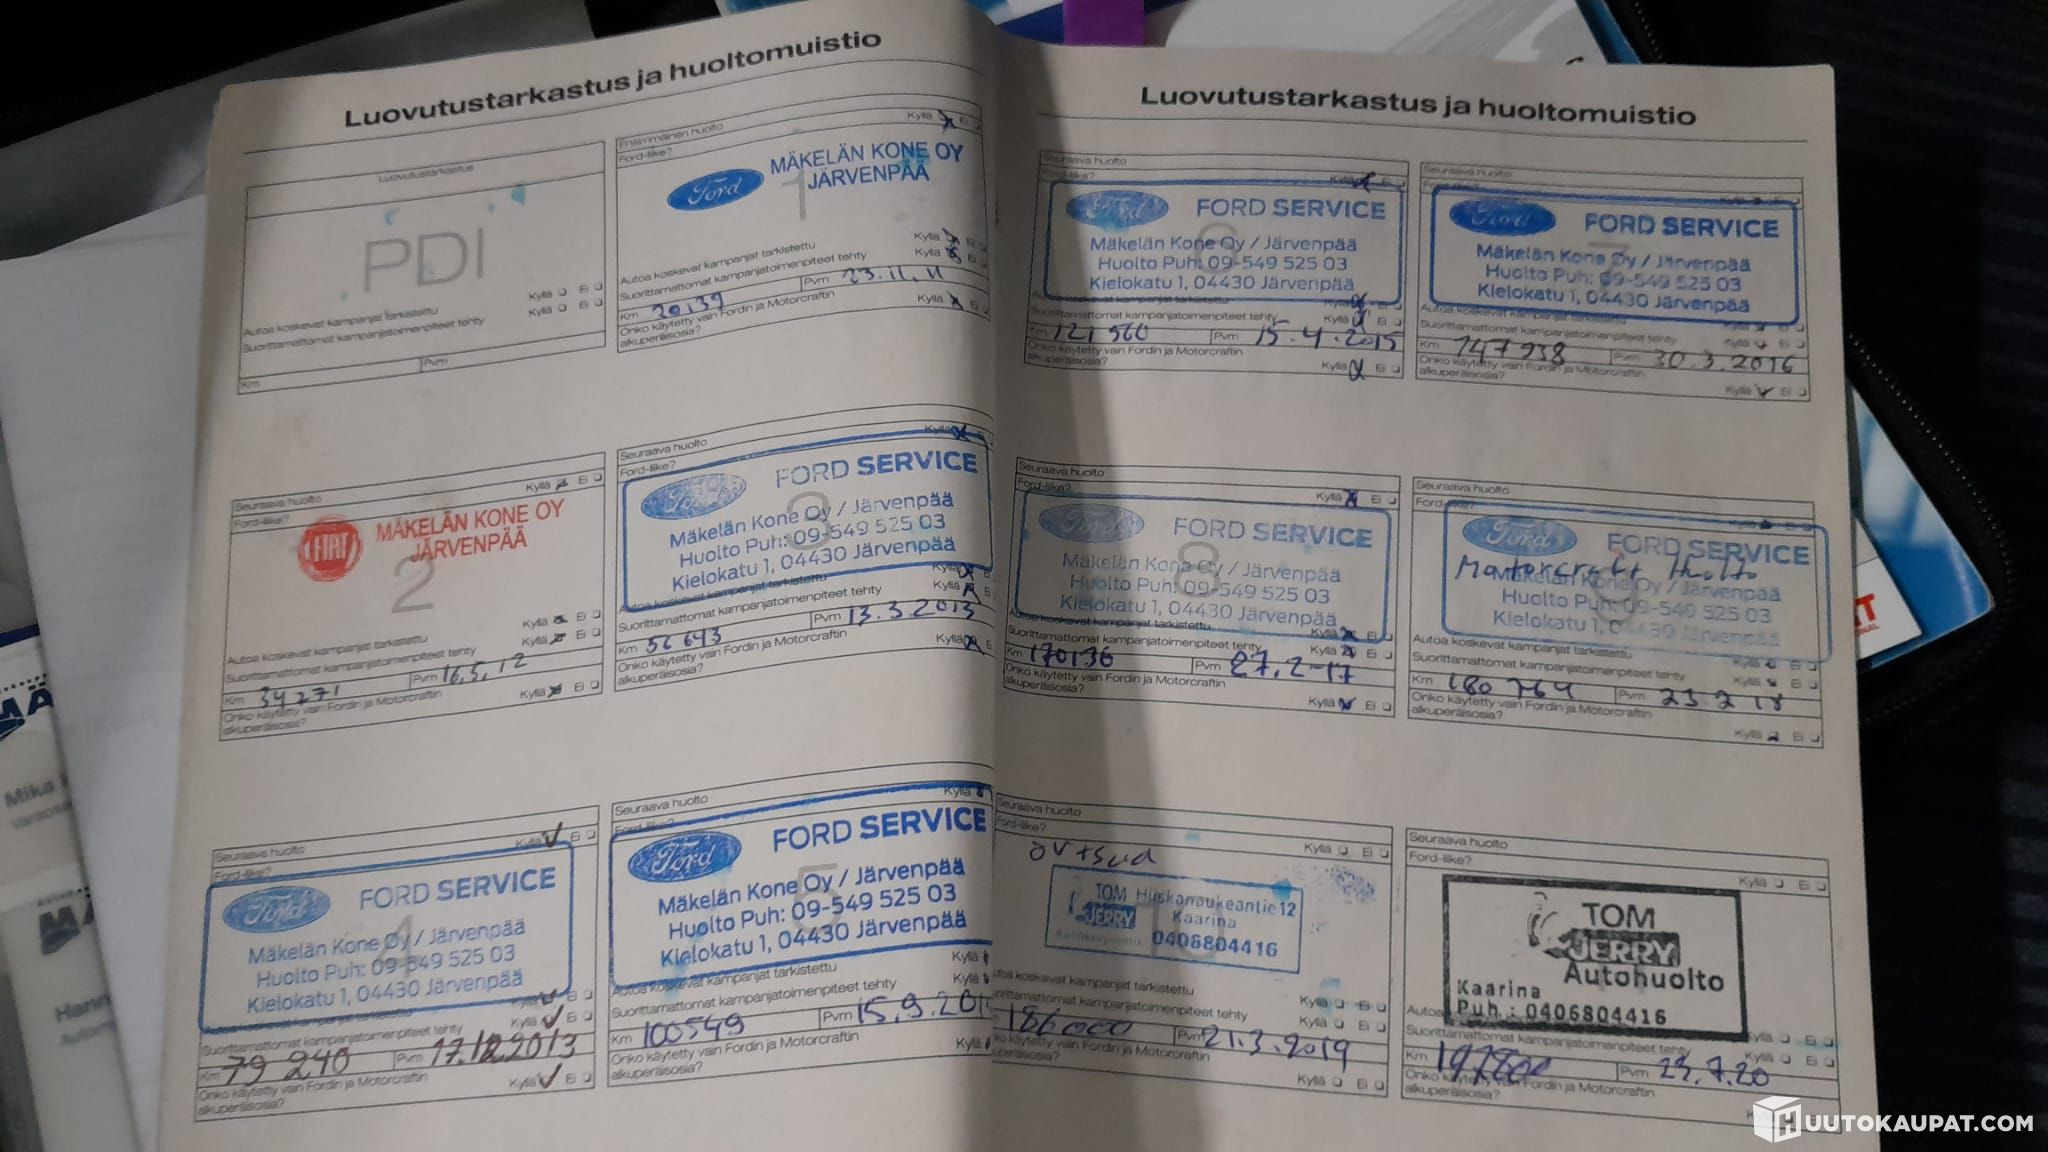 Luovutustarkastus ja huoltomuistio
Luovutustarkastus
PDI
Autoa koskevat kampanjat tarkistettu
Kyllä Ei
Suorittamattomat kampanjatoimenpiteet tehty
Kyllä Ei
Km
Pvm
Ensimmäinen huolto
Kyllä Ei
Ford-liike?
1
Ford
MÄKELÄN KONE OY
JÄRVENPÄÄ
Autoa koskevat kampanjat tarkistettu
Kyllä
Suorittamattomat kampanjatoimenpiteet tehty
Kyllä
Km 20139
Pvm 23.11.11
Onko käytetty vain Fordin ja Motorcraftin
alkuperäisosia?
Kyllä
Seuraava huolto
Kyllä Ei
Ford-liike?
FIAT
MÄKELÄN KONE OY
JÄRVENPÄÄ
2
Autoa koskevat kampanjat tarkistettu
Kyllä Ei
Suorittamattomat kampanjatoimenpiteet tehty
Kyllä Ei
Km 34271
Pvm 16.5.12
Onko käytetty vain Fordin ja Motorcraftin
alkuperäisosia?
Kyllä Ei
Seuraava huolto
Kyllä
Ford-liike?
3
Ford
FORD SERVICE
Mäkelän Kone Oy / Järvenpää
Huolto Puh: 09-549 525 03
Kielokatu 1, 04430 Järvenpää
Autoa koskevat kampanjat tarkistettu
Kyllä
Suorittamattomat kampanjatoimenpiteet tehty
Kyllä
Km 56643
Pvm 13.3.2013
Onko käytetty vain Fordin ja Motorcraftin
alkuperäisosia?
Kyllä
Seuraava huolto
Kyllä Ei
Ford-liike?
4
Ford
FORD SERVICE
Mäkelän Kone Oy / Järvenpää
Huolto Puh: 09-549 525 03
Kielokatu 1, 04430 Järvenpää
Kyllä Ei
Suorittamattomat kampanjatoimenpiteet tehty
Kyllä Ei
Km 79 240
Pvm 17.12.2013
Onko käytetty vain Fordin ja Motorcraftin
alkuperäisosia?
Kyllä Ei
Seuraava huolto
Kyllä
Ford-liike?
5
Ford
FORD SERVICE
Mäkelän Kone Oy / Järvenpää
Huolto Puh: 09-549 525 03
Kielokatu 1, 04430 Järvenpää
Autoa koskevat kampanjat tarkistettu
Kyllä
Suorittamattomat kampanjatoimenpiteet tehty
Kyllä
Km 100549
Pvm 15.9.201
Onko käytetty vain Fordin ja Motorcraftin
alkuperäisosia?
Kyllä
Luovutustarkastus ja huoltomuistio
Seuraava huolto
Kyllä Ei
Ford-liike?
6
Ford
FORD SERVICE
Mäkelän Kone Oy / Järvenpää
Huolto Puh: 09-549 525 03
Kielokatu 1, 04430 Järvenpää
Autoa koskevat kampanjat tarkistettu
Kyllä Ei
Suorittamattomat kampanjatoimenpiteet tehty
Kyllä Ei
Km 121 560
Pvm 15.4.2015
Onko käytetty vain Fordin ja Motorcraftin
alkuperäisosia?
Kyllä Ei
Seuraava huolto
Ford-liike?
7
Ford
FORD SERVICE
Mäkelän Kone Oy / Järvenpää
Huolto Puh: 09-549 525 03
Kielokatu 1, 04430 Järvenpää
Autoa koskevat kampanjat tarkistettu
Suorittamattomat kampanjatoimenpiteet tehty
Kyllä Ei
Km 147 938
Pvm 30.3.2016
Onko käytetty vain Fordin ja Motorcraftin
alkuperäisosia?
Kyllä Ei
Seuraava huolto
Kyllä Ei
Ford-liike?
8
Ford
FORD SERVICE
Mäkelän Kone Oy / Järvenpää
Huolto Puh: 09-549 525 03
Kielokatu 1, 04430 Järvenpää
Autoa koskevat kampanjat tarkistettu
Kyllä Ei
Suorittamattomat kampanjatoimenpiteet tehty
Kyllä Ei
Km 170136
Pvm 27.2-17
Onko käytetty vain Fordin ja Motorcraftin
alkuperäisosia?
Kyllä Ei
Seuraava huolto
Ford-liike?
Ford
FORD SERVICE
Motorcraft Huolto
Mäkelän Kone Oy / Järvenpää
Huolto Puh: 09-549 525 03
Kielokatu 1, 04430 Järvenpää
Autoa koskevat kampanjat tarkistettu
Kyllä Ei
Suorittamattomat kampanjatoimenpiteet tehty
Kyllä Ei
Km 180 764
Pvm 23.2 18
Onko käytetty vain Fordin ja Motorcraftin
alkuperäisosia?
Kyllä Ei
Seuraava huolto
Ford-liike?
Kyllä Ei
10
TOM
JERRY
Kaarina
0406804416
Autoa koskevat kampanjat tarkistettu
Kyllä Ei
Suorittamattomat kampanjatoimenpiteet tehty
Kyllä Ei
186000
Pvm 21.3.2019
Onko käytetty vain Fordin ja Motorcraftin
alkuperäisosia?
Kyllä Ei
Seuraava huolto
Ford-liike?
Kyllä Ei
TOM
JERRY
Autohuolto
Kaarina
Puh.: 0406804416
Kyllä Ei
Suorittamattomat kampanjatoimenpiteet tehty
Kyllä Ei
Km
Pvm 23.7.20
Onko käytetty vain Fordin ja Motorcraftin
alkuperäisosia?
Mika
HUUTOKAUPAT.COM